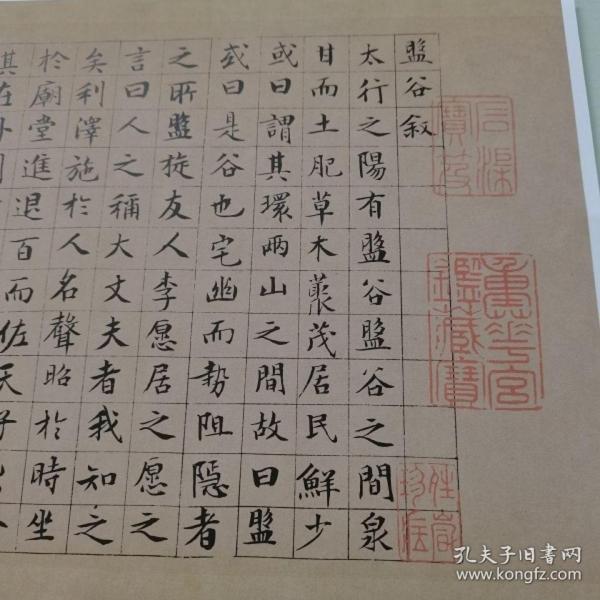 盤谷叙
太行之陽有盤谷盤谷之間泉
甘而土肥草木藂茂居民鮮少
或曰謂其環兩山之間故曰盤
或曰是谷也宅幽而勢阻隱者
之所盤旋友人李愿居之愿之
言曰人之稱大丈夫者我知之
矣利澤施於人名聲昭於時坐
於廟堂進退百而佐天子出令
其在外
石渠寶笈
重華宮鑑藏寶
孔夫子旧书网
www.kongfz.com